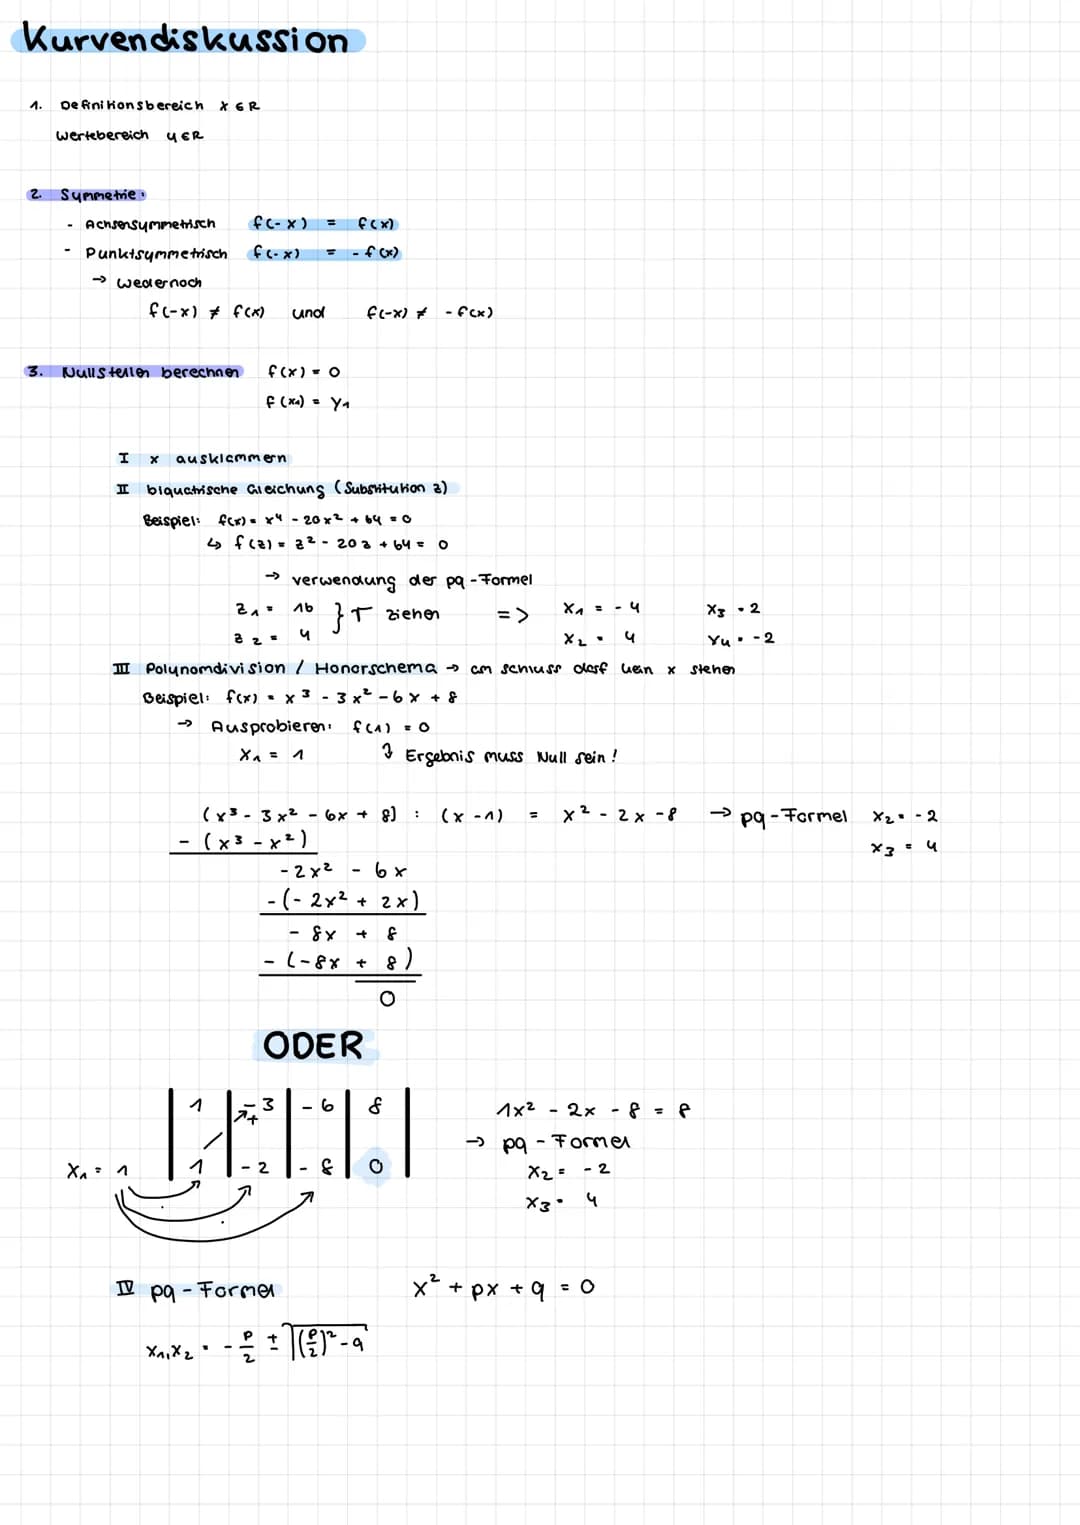 Kurvendiskussion
1. Definitionsbereich x ∈ R
Wertebereich y ∈ R
2. Symmetrie:
- Achsensymmetrisch f(-x) = f(x)
- Punktsymmetrisch f(-x) = - f(x)
→ wedernoch
f(-x) ≠ f(x) und f(-x) ≠ - f(x)
3. Nullstellen berechnen f(x) = 0
f(x₁) = y₁
I x ausklammern
II biquatrische Gleichung (Substitution z)
Beispiel: f(x) = x⁴ - 20x² + 64 = 0
↳ f(z) = z² - 20z + 64 = 0
→ verwendung der pq-Formel
z₁ = 16 } √ ziehen => x₁ = - 4 x₃ = 2
z₂ = 4 x₂ = 4 x₄ = -2
III Polynomdivision / Honorschema → am schluss darf kein x stehen
Beispiel: f(x) = x³ - 3x² - 6x + 8
→ Ausprobieren: f(1) = 0
x₁ = 1 Ergebnis muss Null sein!
(x³ - 3x² - 6x + 8) : (x - 1) = x² - 2x - 8 → pq-Formel x₂ = -2
- (x³ - x²) x₃ = 4
-2x² - 6x
-(-2x² + 2x)
- 8x + 8
- (-8x + 8)
0
ODER
1 | -3 | -6 | 8 1x² - 2x - 8 = 8
+ → pq-Formel
x₁ = 1 | 1 | -2 | -8 | 0 x₂ = -2
x₃ = 4
IV pq-Formel x² + px + q = 0
x₁,x₂ = - p/2 ± √((p/2)² - q)